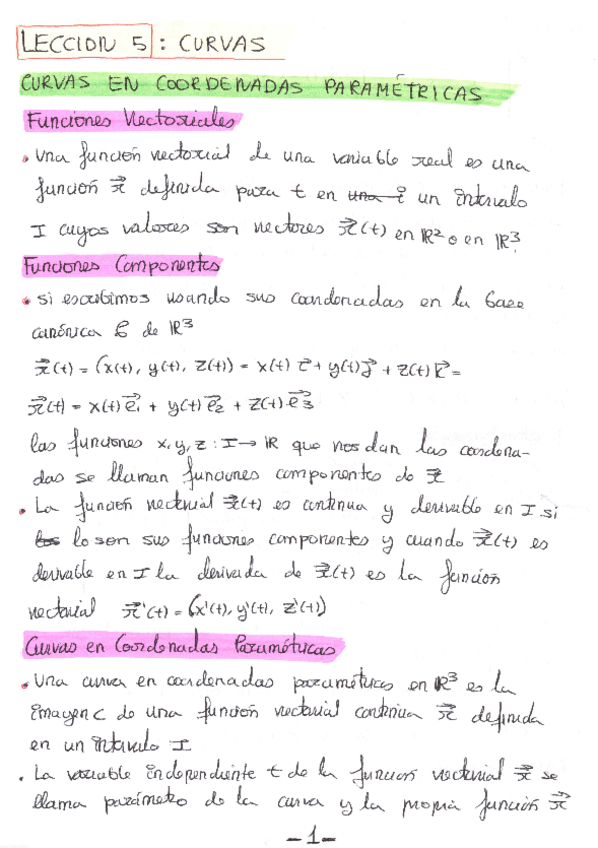 LECCION 5 : CURVAS
CURVAS EN COORDENADAS PARAMÉTRICAS
Funciones Vectoriales
• Una función vectorial de una variable real es una
función r⃗ definida para t en ~~una i~~ un intervalo
I cuyos valores son vectores r⃗(t) en ℝ² o en ℝ³.
Funciones Componentes
• si escribimos usando sus coordenadas en la base
canónica C de ℝ³
r⃗(t) = (x(t), y(t), z(t)) = x(t) i⃗ + y(t) j⃗ + z(t) k⃗ =
r⃗(t) = x(t) e⃗₁ + y(t) e⃗₂ + z(t) e⃗₃
las funciones x, y, z : I → ℝ que nos dan las coordena-
das se llaman funciones componentes de r⃗
• La función vectorial r⃗(t) es continua y derivable en I si
~~los~~ lo son sus funciones componentes y cuando r⃗(t) es
derivable en I la derivada de r⃗(t) es la función
vectorial r⃗'(t) = (x'(t), y'(t), z'(t))
Curvas en Coordenadas Paramétricas
• Una curva en coordenadas paramétricas en ℝ³ es la
imagen C de una función vectorial continua r⃗ definida
en un intervalo I
• La variable independiente t de la función vectorial r⃗ se
llama parámetro de la curva y la propia función r⃗
-1-